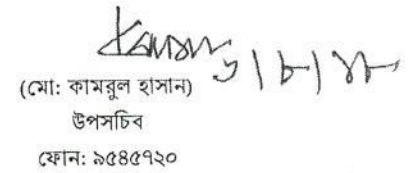 ৬|৮|১৮
(মো: কামরুল হাসান)
উপসচিব
ফোন: ৯৫৪৫৭২০